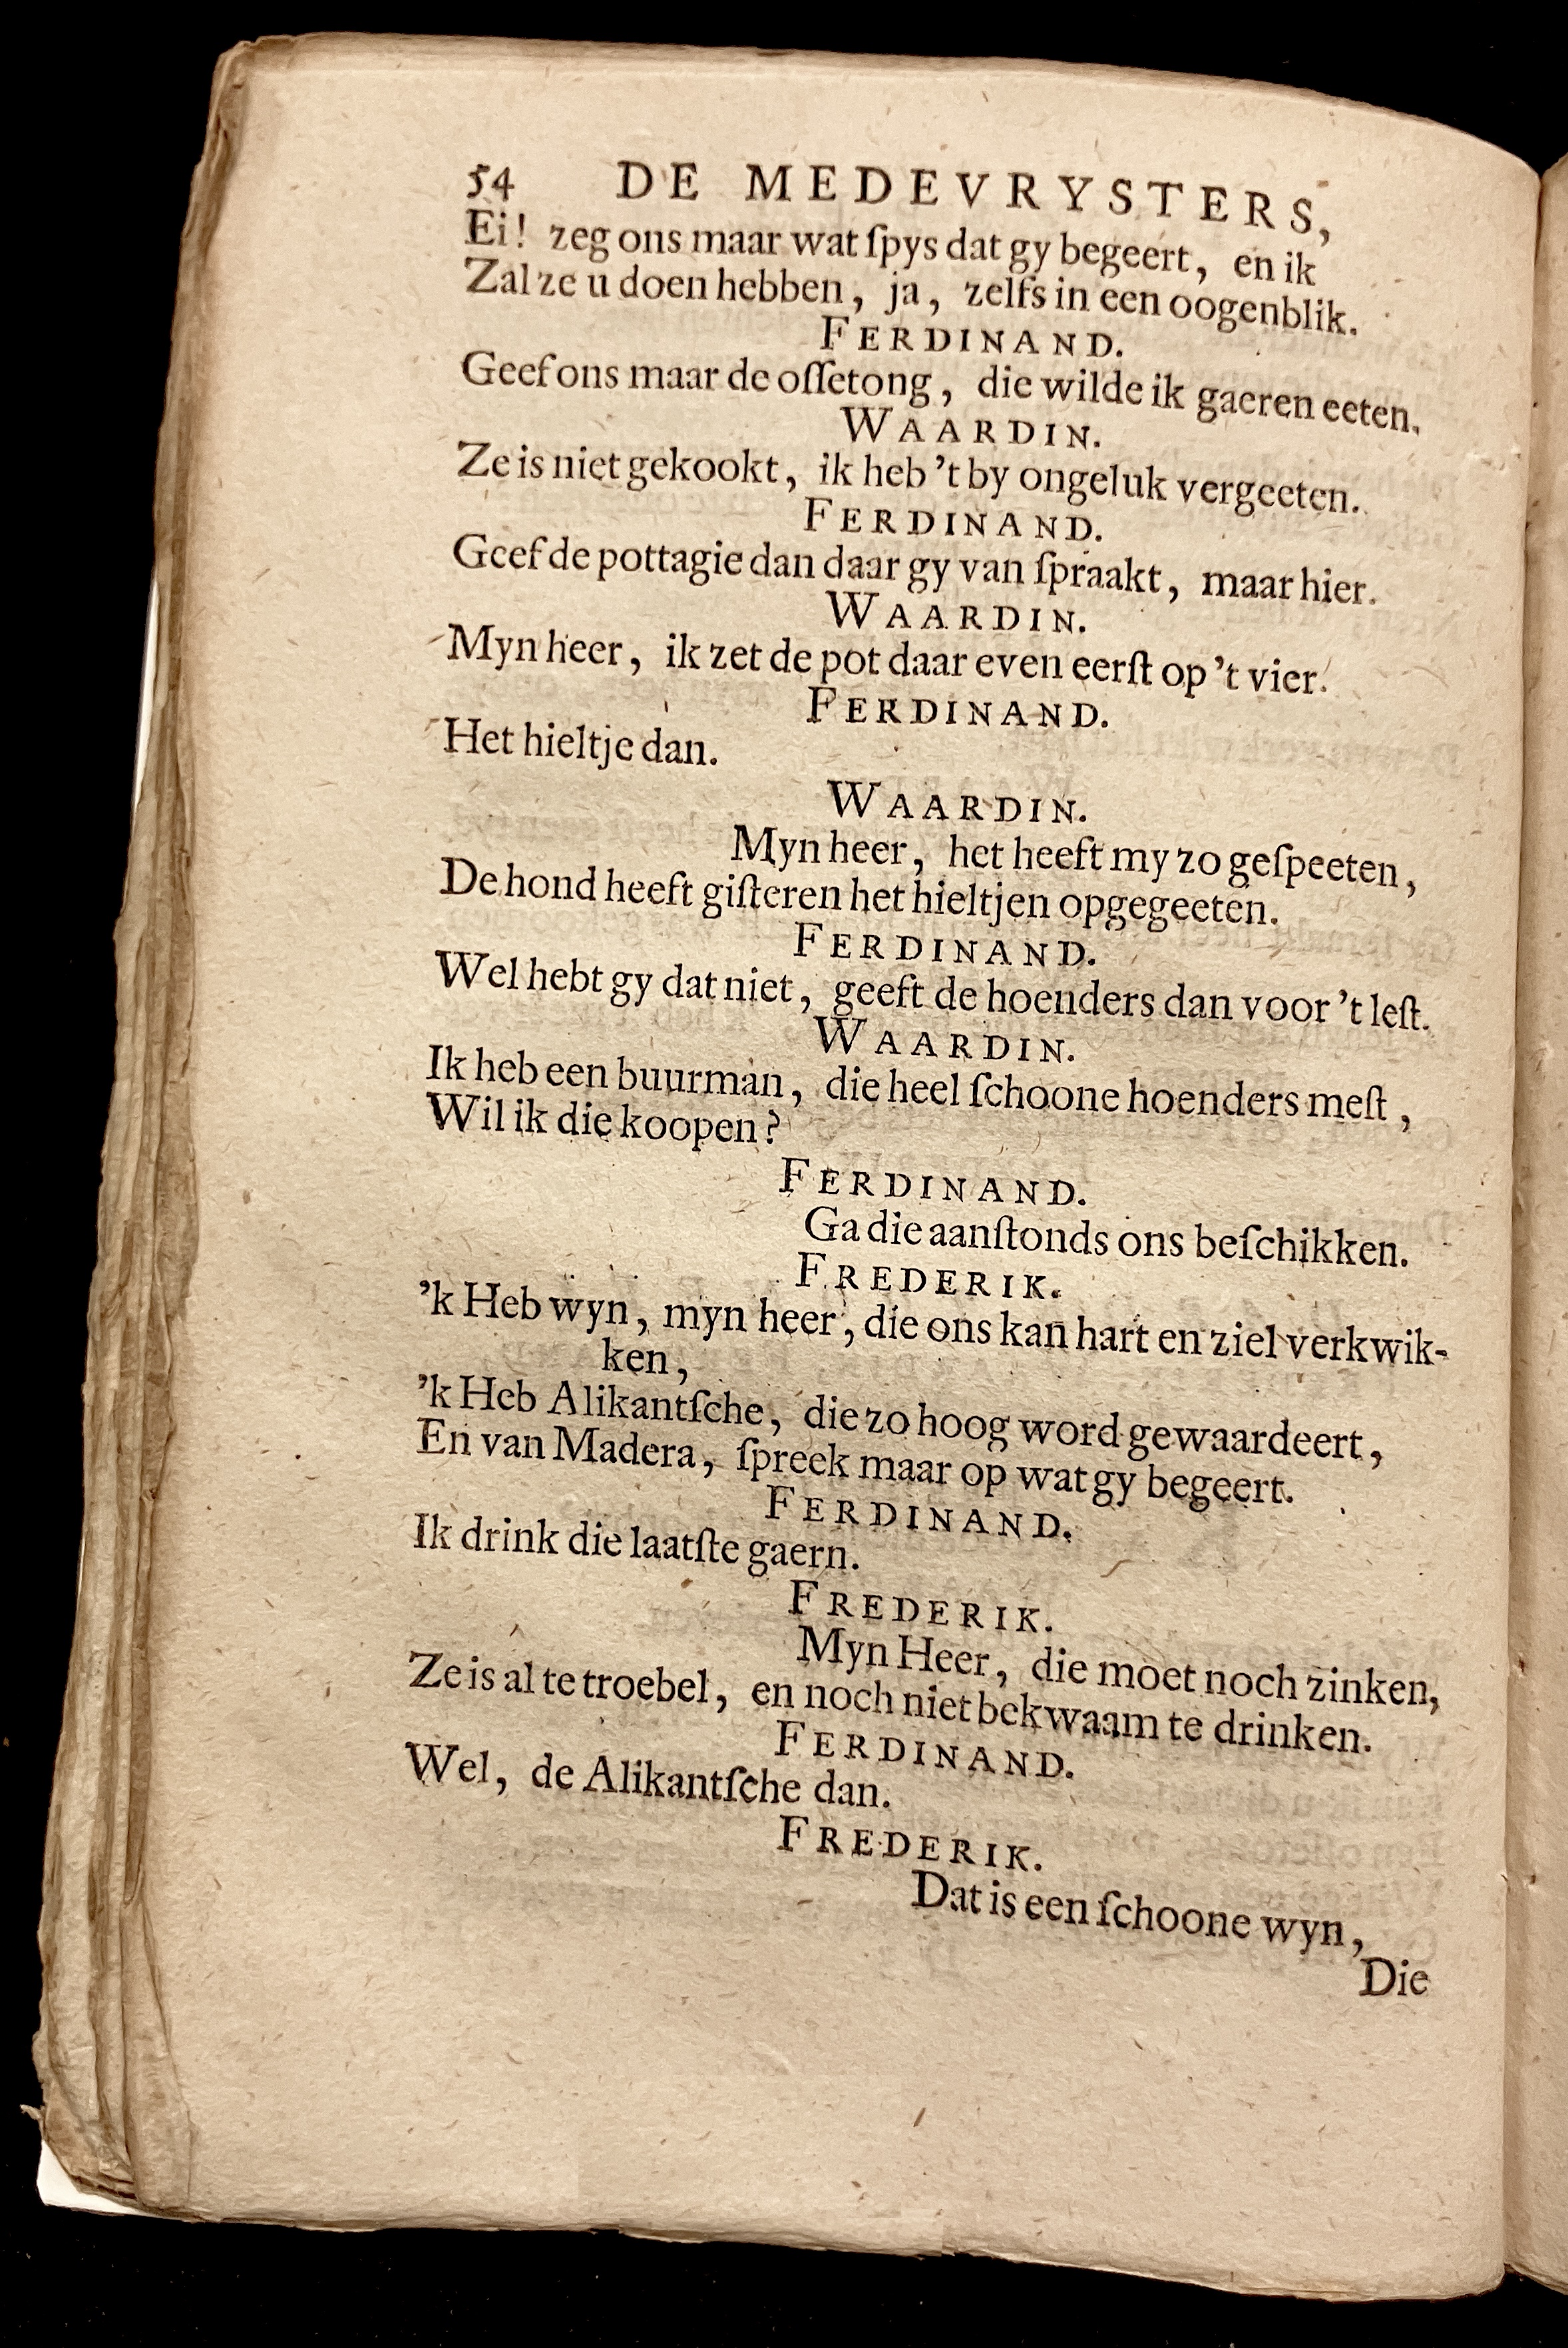 54 DE MEDEVRYSTERS,
Ei! zeg ons maar wat ſpys dat gy begeert, en ik
Zal ze u doen hebben, ja, zelfs in een oogenblik.
FERDINAND.
Geef ons maar de oſſetong, die wilde ik gaeren eeten.
WAARDIN.
Ze is niet gekookt, ik heb 't by ongeluk vergeeten.
FERDINAND.
Geef de pottagie dan daar gy van ſpraakt, maar hier.
WAARDIN.
Myn heer, ik zet de pot daar even eerſt op 't vier.
FERDINAND.
Het hieltje dan.
WAARDIN.
Myn heer, het heeft my zo geſpeeten,
De hond heeft giſteren het hieltjen opgegeeten.
FERDINAND.
Wel hebt gy dat niet, geeft de hoenders dan voor 't leſt.
WAARDIN.
Ik heb een buurman, die heel ſchoone hoenders meſt,
Wil ik die koopen?
FERDINAND.
Ga die aanſtonds ons beſchikken.
FREDERIK.
'k Heb wyn, myn heer, die ons kan hart en ziel verkwik-
ken,
'k Heb Alikantſche, die zo hoog word gewaardeert,
En van Madera, ſpreek maar op wat gy begeert.
FERDINAND.
Ik drink die laatſte gaern.
FREDERIK.
Myn Heer, die moet noch zinken,
Ze is al te troebel, en noch niet bekwaam te drinken.
FERDINAND.
Wel, de Alikantſche dan.
FREDERIK.
Dat is een ſchoone wyn,
Die